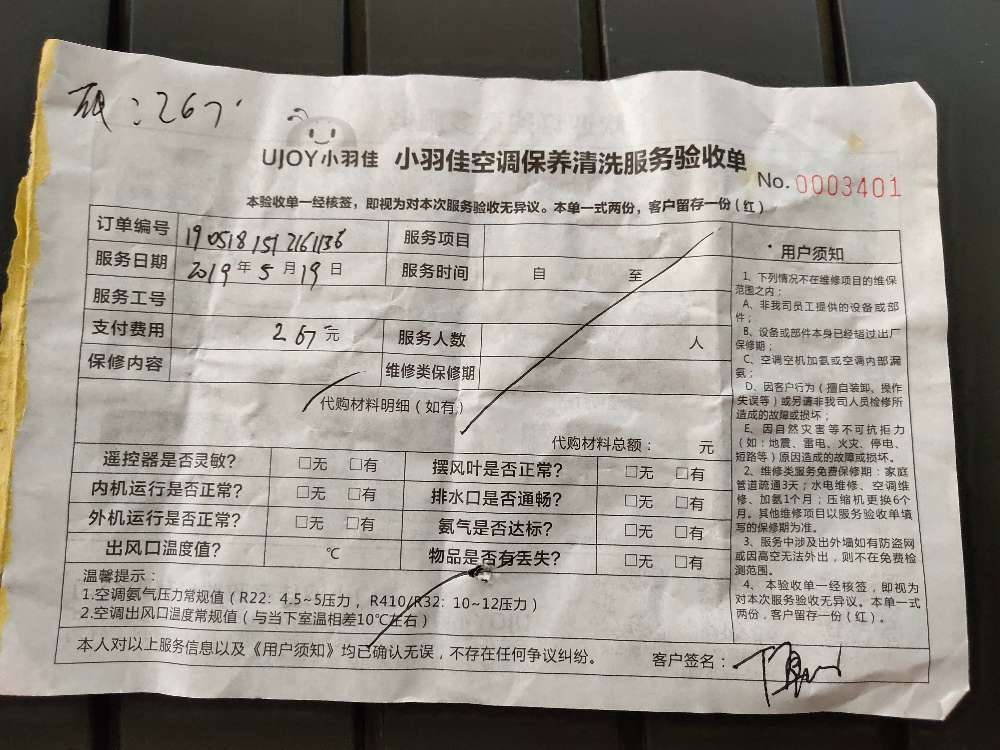 :267
UJOY小羽佳 小羽佳空调保养清洗服务验收单
No. 0003401
本验收单一经核签，即视为对本次服务验收无异议。本单一式两份，客户留存一份（红）
订单编号 1905181512161136 服务项目
服务日期 2019年5月19日 服务时间 自 至
服务工号
支付费用 267元 服务人数 人
保修内容 维修类保修期
代购材料明细（如有）
代购材料总额： 元
遥控器是否灵敏？ □无 □有 摆风叶是否正常？ □无 □有
内机运行是否正常？ □无 □有 排水口是否通畅？ □无 □有
外机运行是否正常？ □无 □有 氨气是否达标？ □无 □有
出风口温度值？ ℃ 物品是否有丢失？ □无 □有
温馨提示：
1.空调氨气压力常规值（R22：4.5~5压力，R410/R32：10~12压力）
2.空调出风口温度常规值（与当下室温相差10℃左右）
本人对以上服务信息以及《用户须知》均已确认无误，不存在任何争议纠纷。 客户签名：
用户须知
1、下列情况不在维修项目的维保
范围之内：
A、非我司员工提供的设备或部
件；
B、设备或部件本身已经超过出厂
保修期；
C、空调空机加氨或空调内部漏
氨；
D、因客户行为（擅自装卸、操作
失误等）或另请非我司人员检修所
造成的故障或损坏；
E、因自然灾害等不可抗拒力
（如：地震、雷电、火灾、停电、
短路等）原因造成的故障或损坏。
2、维修类服务免费保修期：家庭
管道疏通3天；水电维修、空调维
修、加氨1个月；压缩机更换6个
月。其他维修项目以服务验收单填
写的保修期为准。
3、服务中涉及出外墙如有防盗网
或因高空无法外出，则不在免费检
测范围。
4、本验收单一经核签，即视为
对本次服务验收无异议。本单一式
两份，客户留存一份（红）。